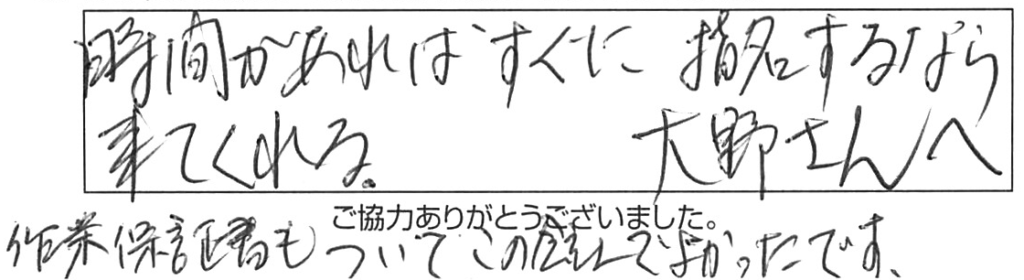 時間があればすぐに 指名するなら
来てくれる。 大野さんへ
ご協力ありがとうございました。
作業保証書もついてこの店にしてよかったです、